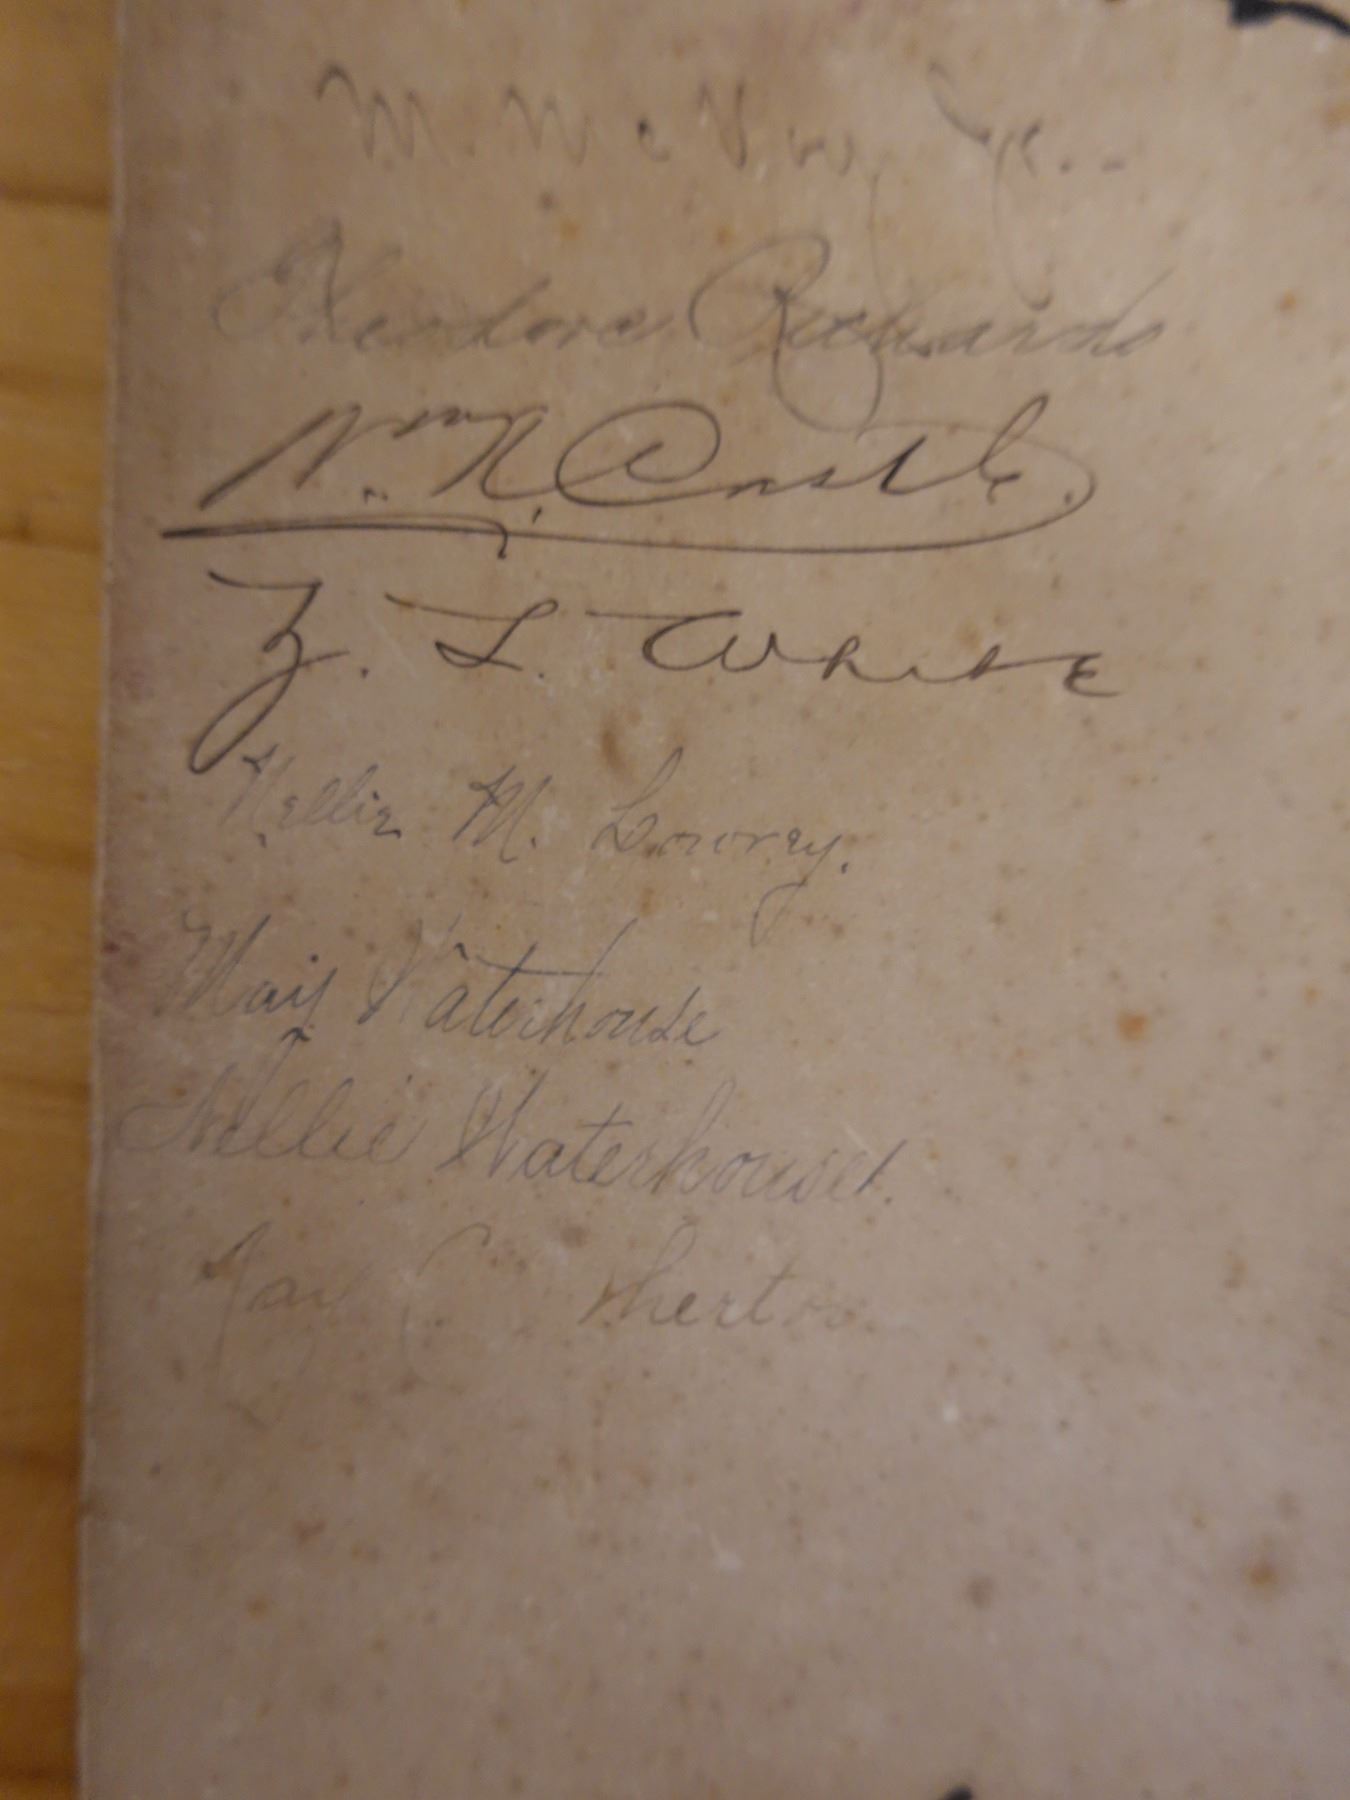 M. McVoy Jr.
Theodore Richards
Wm. R. Castle.
Z. L. White
Nellie M. Lowrey.
May Waterhouse
Nellie Waterhouse.
May C